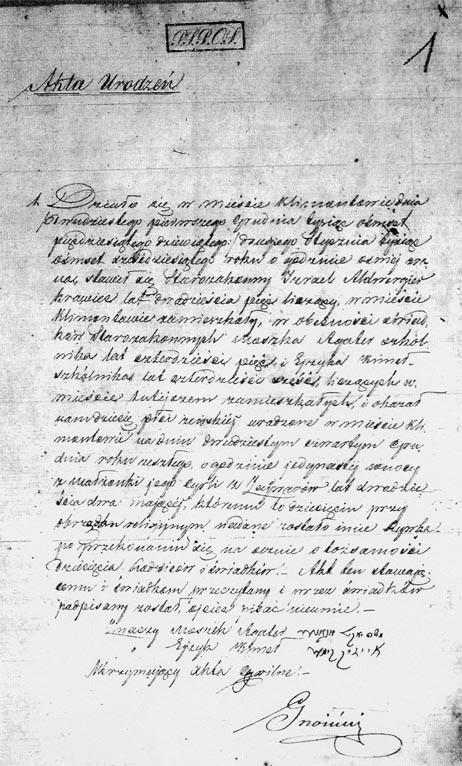 P.S.P.O.S.
1
Akta Urodzeń
1. Działo się w mieście Klimantowie dnia
dwudziestego pierwszego Grudnia tysiąc ośmset
pięćdziesiątego dziewiątego/drugiego Stycznia tysiąc
ośmset sześćdziesiątego roku o godzinie ósmej z ra
na, stawił się Starozakonny Izrael
krawiec lat dwadzieścia pięć liczący, w mieście
Klimontowie zamieszkały, w obecności świad
ków Starozakonnych Moszka Agater szkól
nika lat czterdzieści pięć i Eyzyka Kimel
szkólnika lat czterdzieści sześć, liczących w
mieście tutejszem zamieszkałych, i okazał
nam dziecię płci żeńskiej urodzone w mieście Kli
montowie na dniu dwudziestym czwartym Gru
dnia roku zeszłego, o godzinie jedynastej w nocy
z małżonki jego Cyrli z lat dwadzie
ścia dwa mającej, któremu to dziecięciu przy
obrządku religijnym nadane zostało imie
po przekonaniu się na sercie o tożsamości
dziecięcia rodziców i świadków. – Akt ten stawają
cemu i świadkom przeczytany i przez świadków
podpisany został, ojciec pisać nieumie. –
Znaczy Mosiek Agater
" Eyzyk Kimel
Utrzymujący Akta Cywilne.